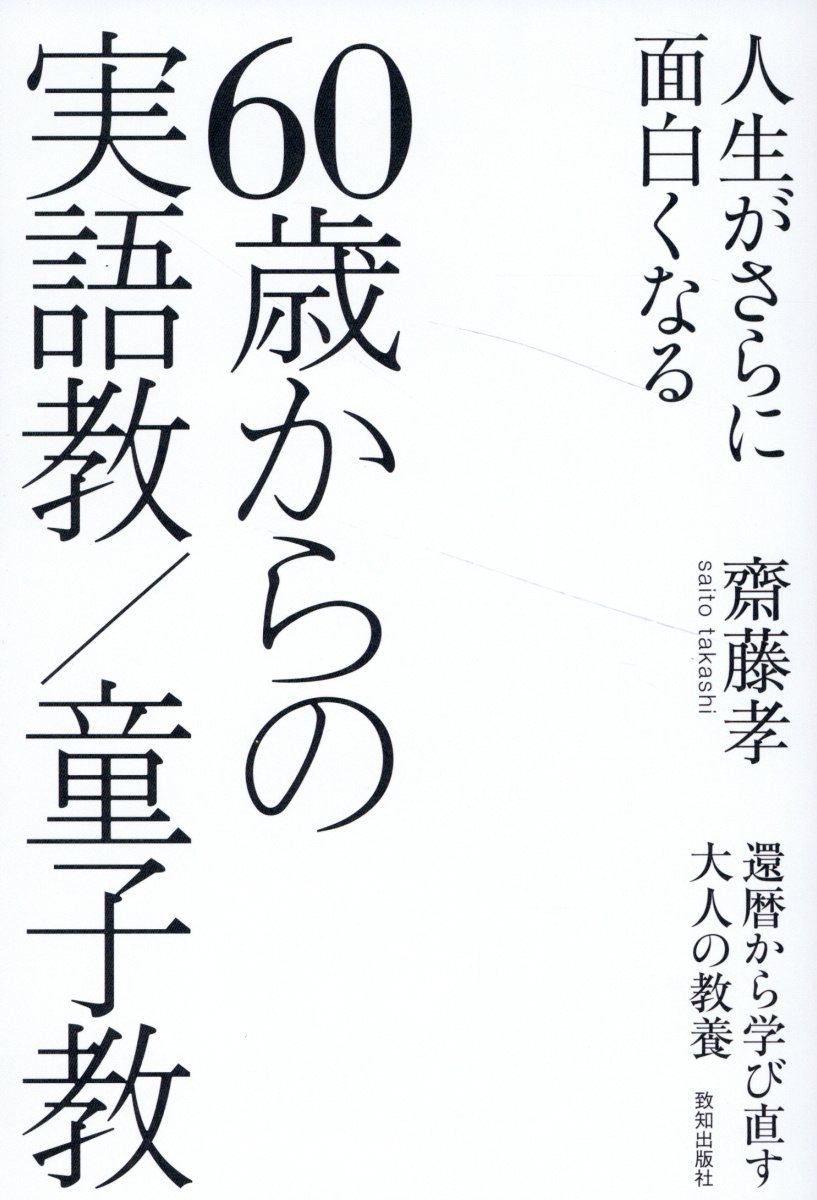 人生がさらに
面白くなる
齋藤孝
saito takashi
還暦から学び直す
大人の教養
致知出版社
60歳からの
実語教／童子教